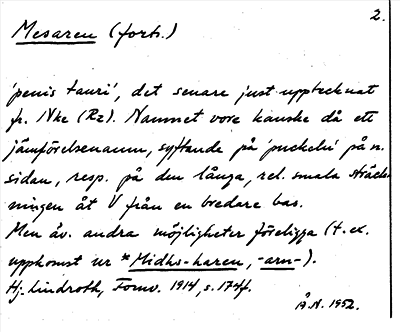 2.
Mesaren (forts.)
'penis tauri', det senare just upptecknat
fr. Nke (Rz). Namnet vore kanske då ett
jämförelsenamn, syftande på 'puckeln' på n.
sidan, resp. på den långa, rel. smala sträck-
ningen åt V från en bredare bas.
Men äv. andra möjligheter föreligga (t. ex.
uppkomst ur *Midhs-haren, -arn-).
Hj. Lindroth, Fornv. 1914, s. 174f.
Å.N. 1952.